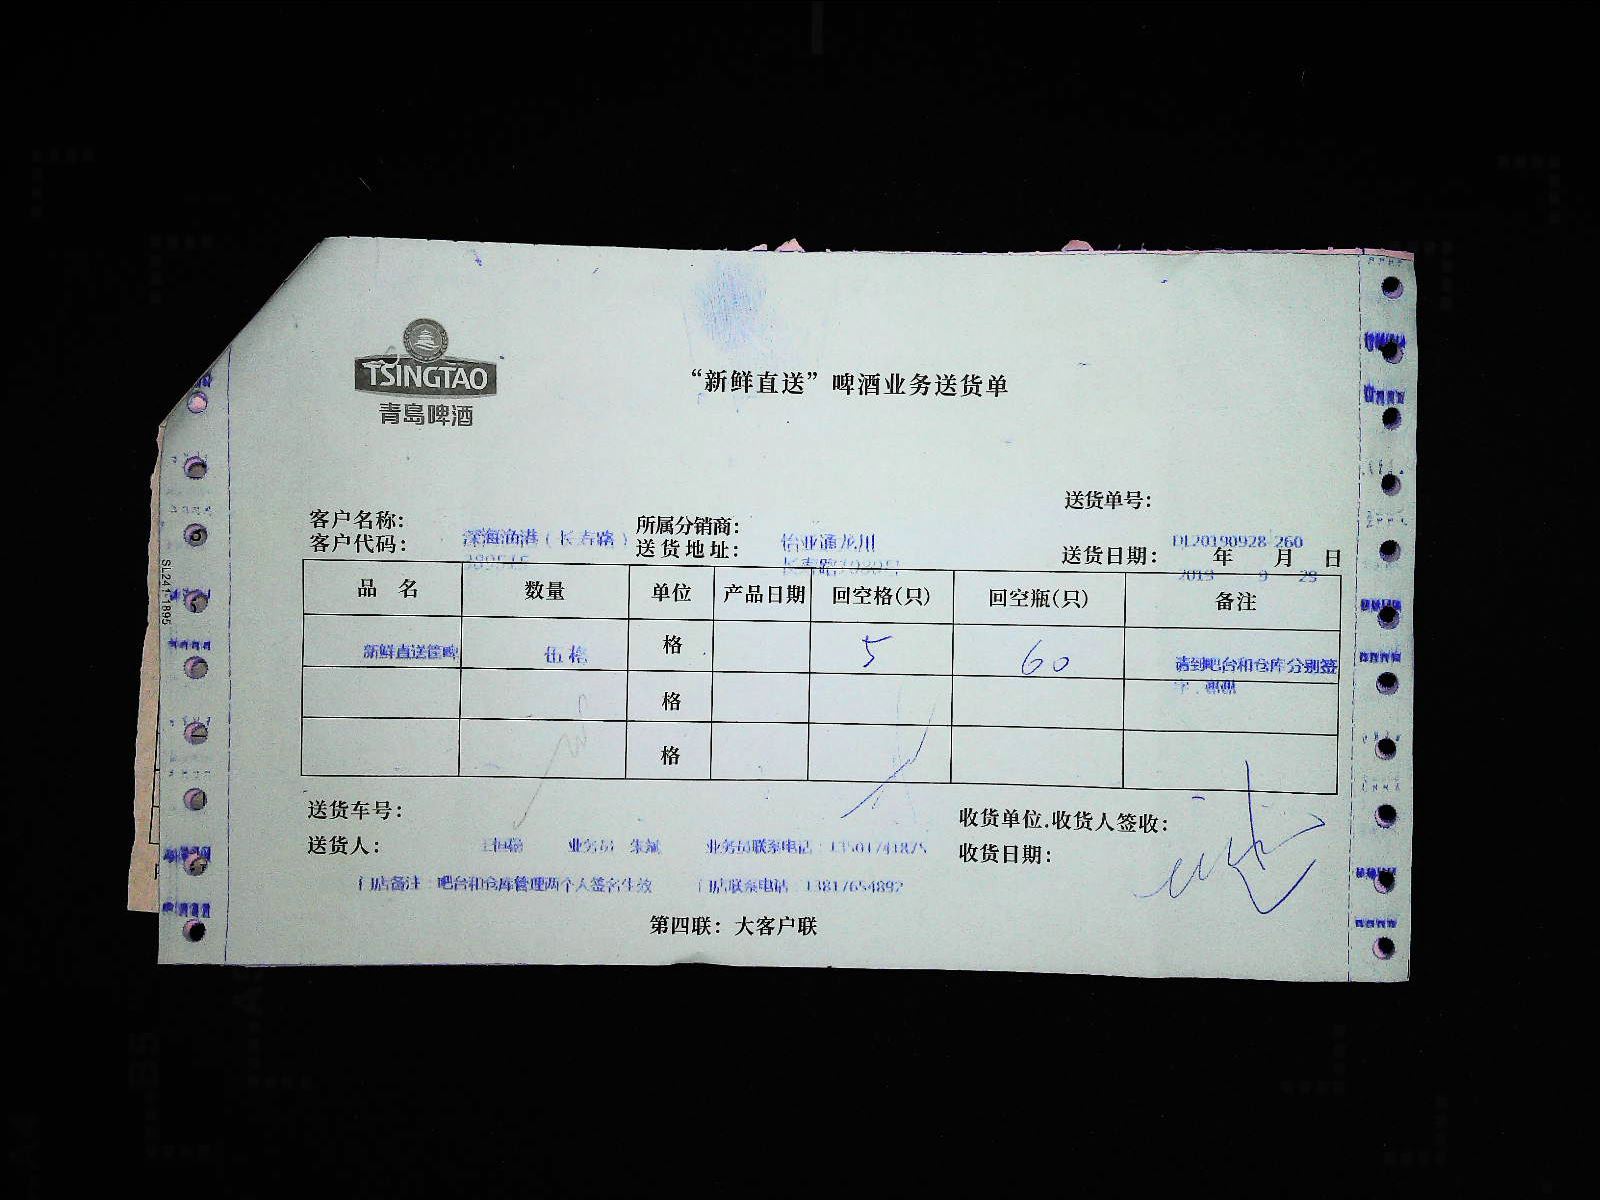 TSINGTAO
青岛啤酒
“新鲜直送”啤酒业务送货单
送货单号：
DL20190928-260
客户名称： 深海渔港（长寿路） 所属分销商： 怡亚通龙川
客户代码： 送货地址： 送货日期： 2019 年 9 月 29 日
品 名 数量 单位 产品日期 回空格(只) 回空瓶(只) 备注
新鲜直送筐啤 伍格 格 5 60 请到吧台和仓库分别签字，谢谢
格
格
送货车号： 收货单位.收货人签收：
送货人： 业务员 朱斌 业务员联系电话：13501741875 收货日期：
门店备注：吧台和仓库管理两个人签名生效 门店联系电话：13817654892
第四联：大客户联
SL241-1895